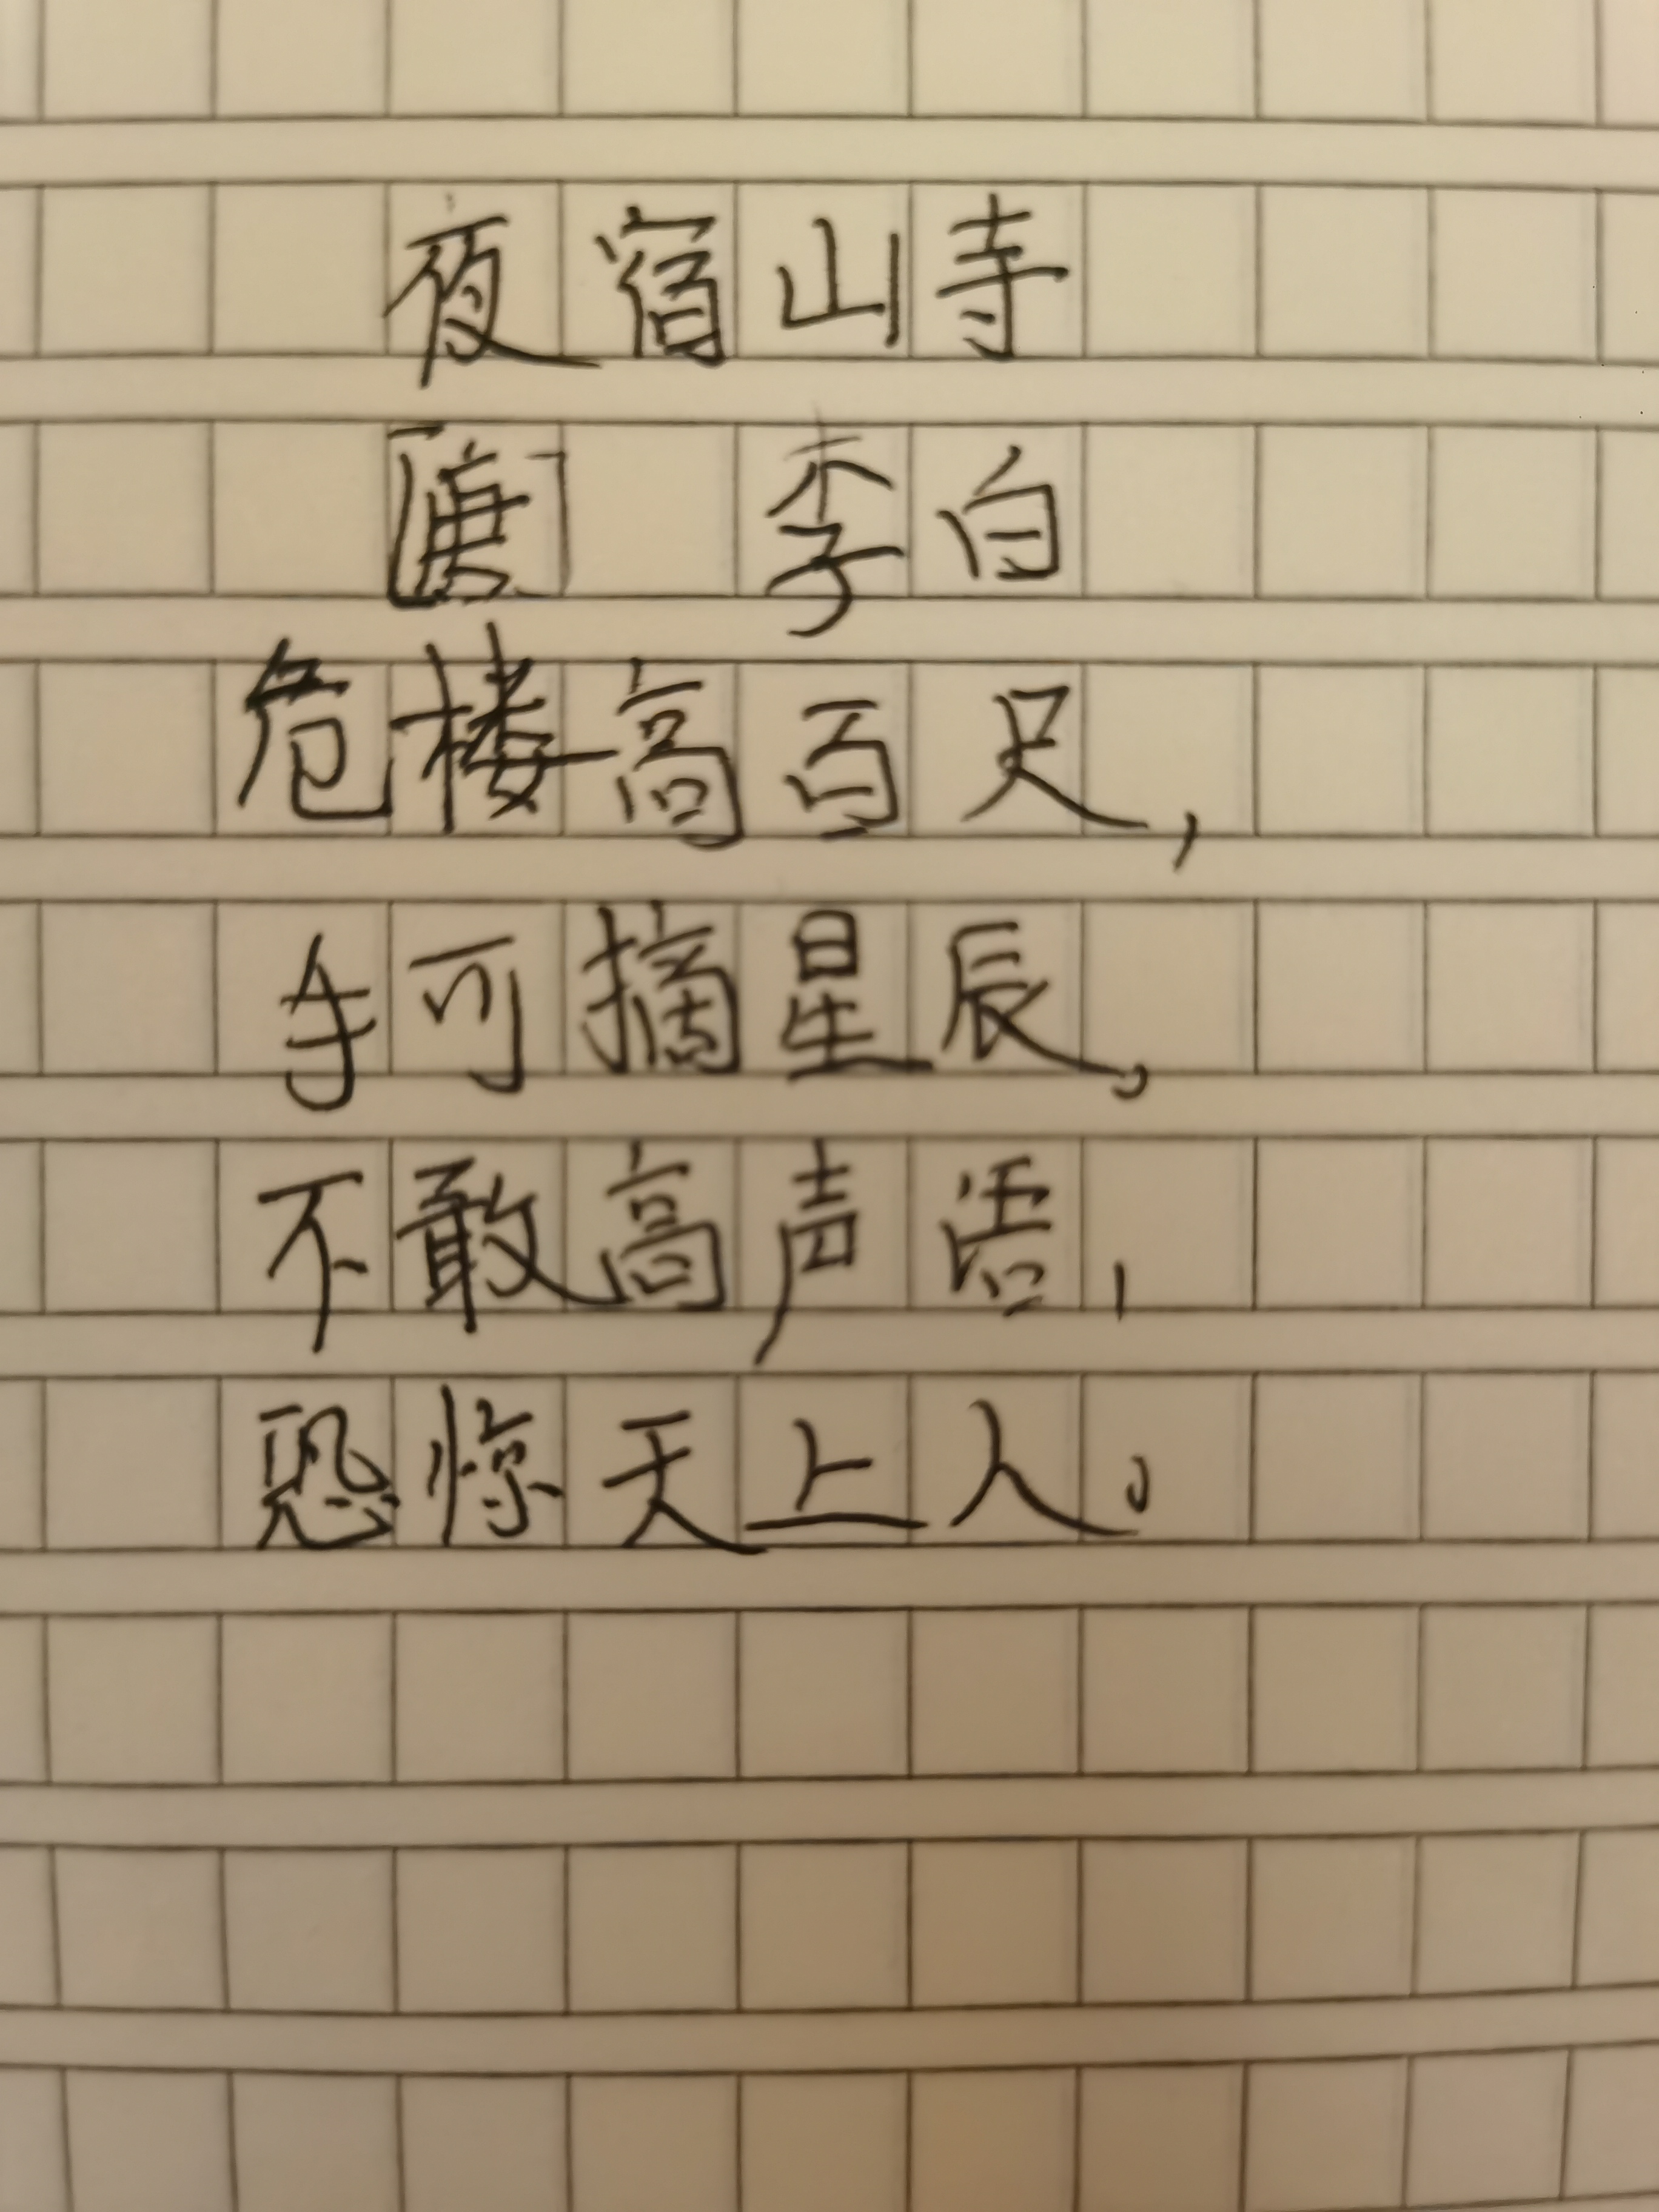 夜宿山寺
[唐] 李白
危楼高百尺，
手可摘星辰。
不敢高声语，
恐惊天上人。